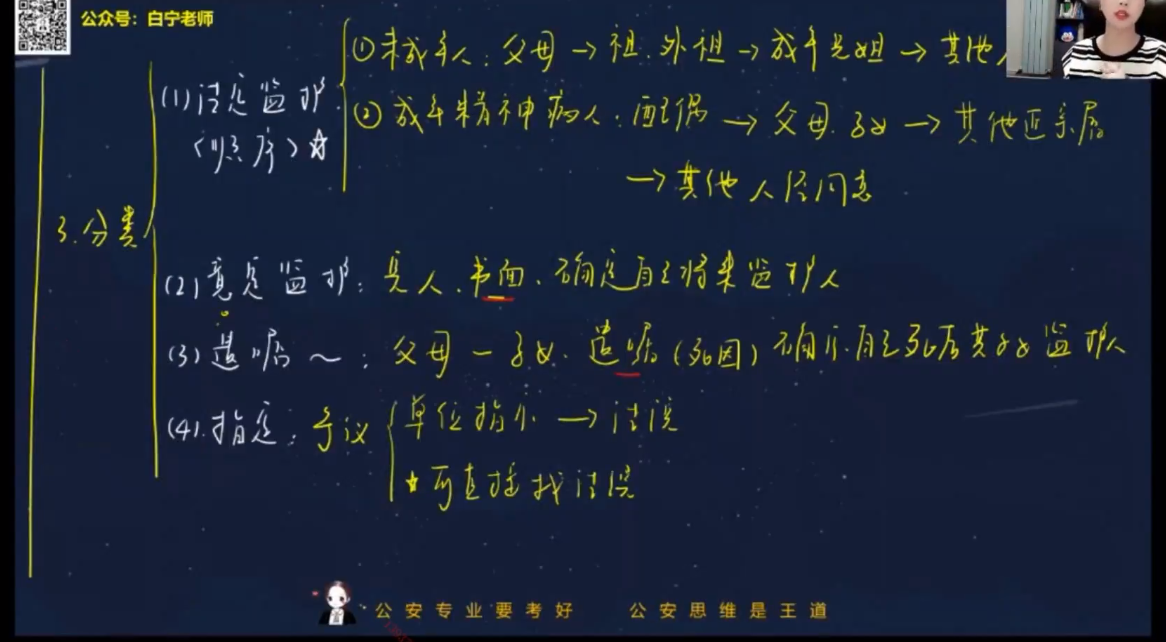 公众号：白宁老师
3.分类
(1)法定监护
〈顺序〉☆
①未成年人：父母→祖、外祖→成年兄姐→其他
②成年精神病人：配偶→父母、子女→其他近亲属
→其他人经同意
(2)意定监护：见人、书面、确定自己将来监护人
(3)遗嘱～：父母—子女、遗嘱(死因)确定自己死后其子女监护人
(4)指定：争议
单位指定→法院
★可直接找法院
公安专业要考好 公安思维是王道